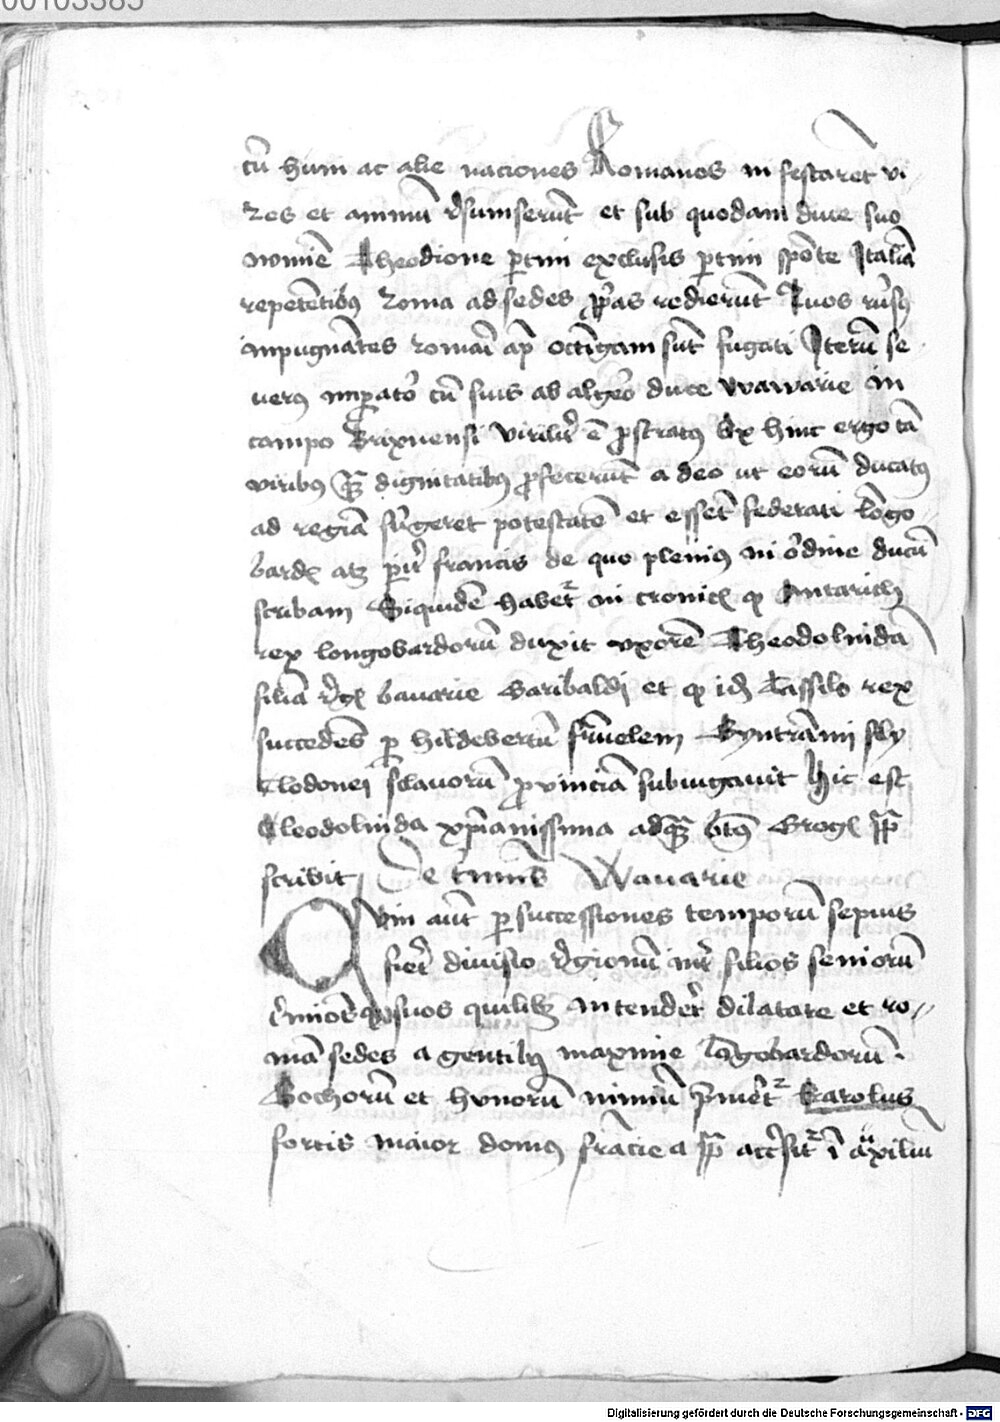 00103385
cū hūni ac alie naciones Romanos in festarēt vi
res et animū rsumserūt et sub quodam duce suo
nomine Theodione partim exclusis partim sponte Italiā
repetētibus roma ad sedes pprias redierūt Quos rursus
inpugnātes romāi ap octingam sūt fugati Iterū se
uerus imperator cū suis ab algero duce wawarie in
campo Brixnensi viriliter ē prostratus Ex hinc ergo tā
viribus quā dignitatibus profecerūt a deo ut eorū ducatus
ad regiā surgeret potestatē et essēt federati lōgo
bardis atque pariter francis de quo plenius in ordine ducū
scribam Siquidē habetur in cronicis quod Antarich
rex longobardorū duxit vxorē Theodolindā
filiā regis bauarie Garibaldi et quod idem Tassilo rex
succedēs per hildebertū fratruelem Gyntrāmi filij
Clodouei sclauorū prouinciā subiugauit Hic est
Theodolinda xpianissima ad quā btus Gregorius papa
scribit De terminis Wauarie
Quin autē per successiones temporū sepius
fieret diuisio regionū inter filios seniorū
terminosque suos quilibet intenderet dilatare et ro
mā sedes a gentibus maxime lōgobardorū
Gothorū et hunorū nimiū premeretur karolus
fortis maior domus frācie a papa accersitur ī auxiliū
Digitalisierung gefördert durch die Deutsche Forschungsgemeinschaft - DFG